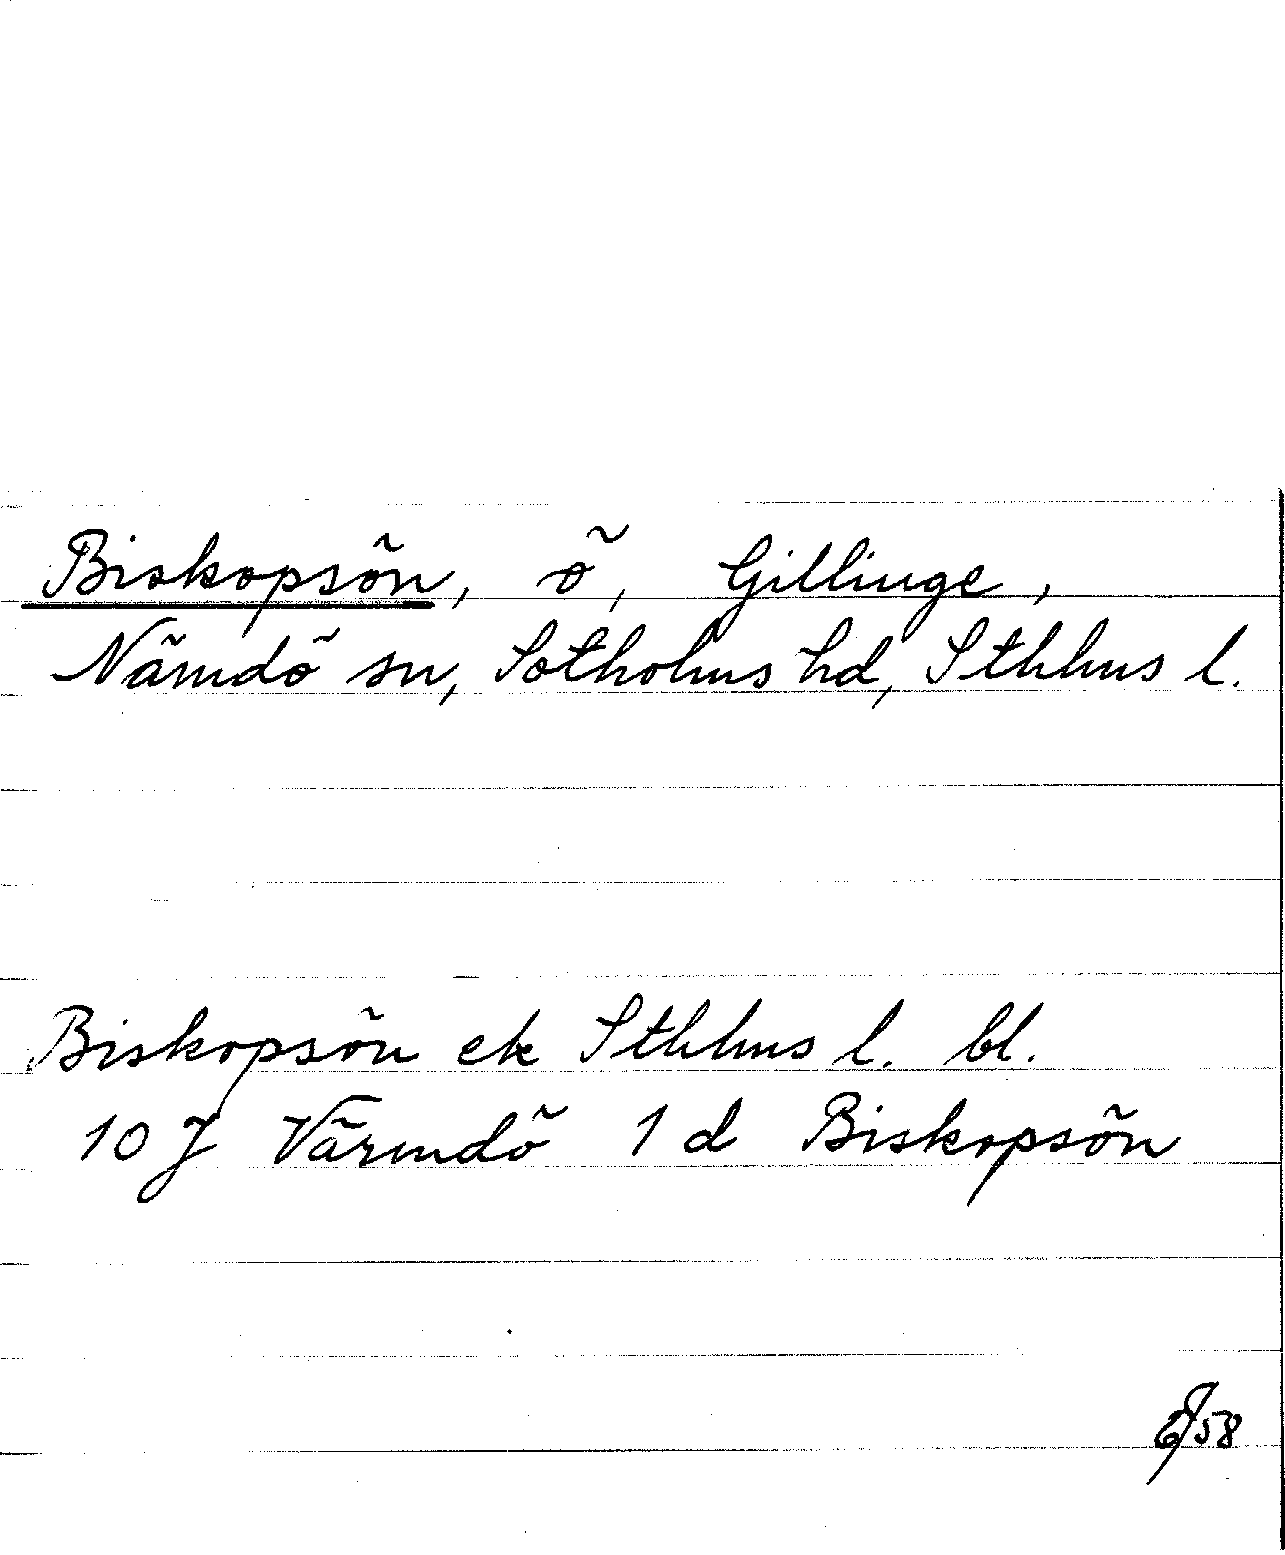 Biskopsön, ö, Gillinge,
Nämdö sn, Sotholms hd, Sthlms l.
Biskopsön ek Sthlms l. bl.
10 J Värmdö 1 d Biskopsön
58